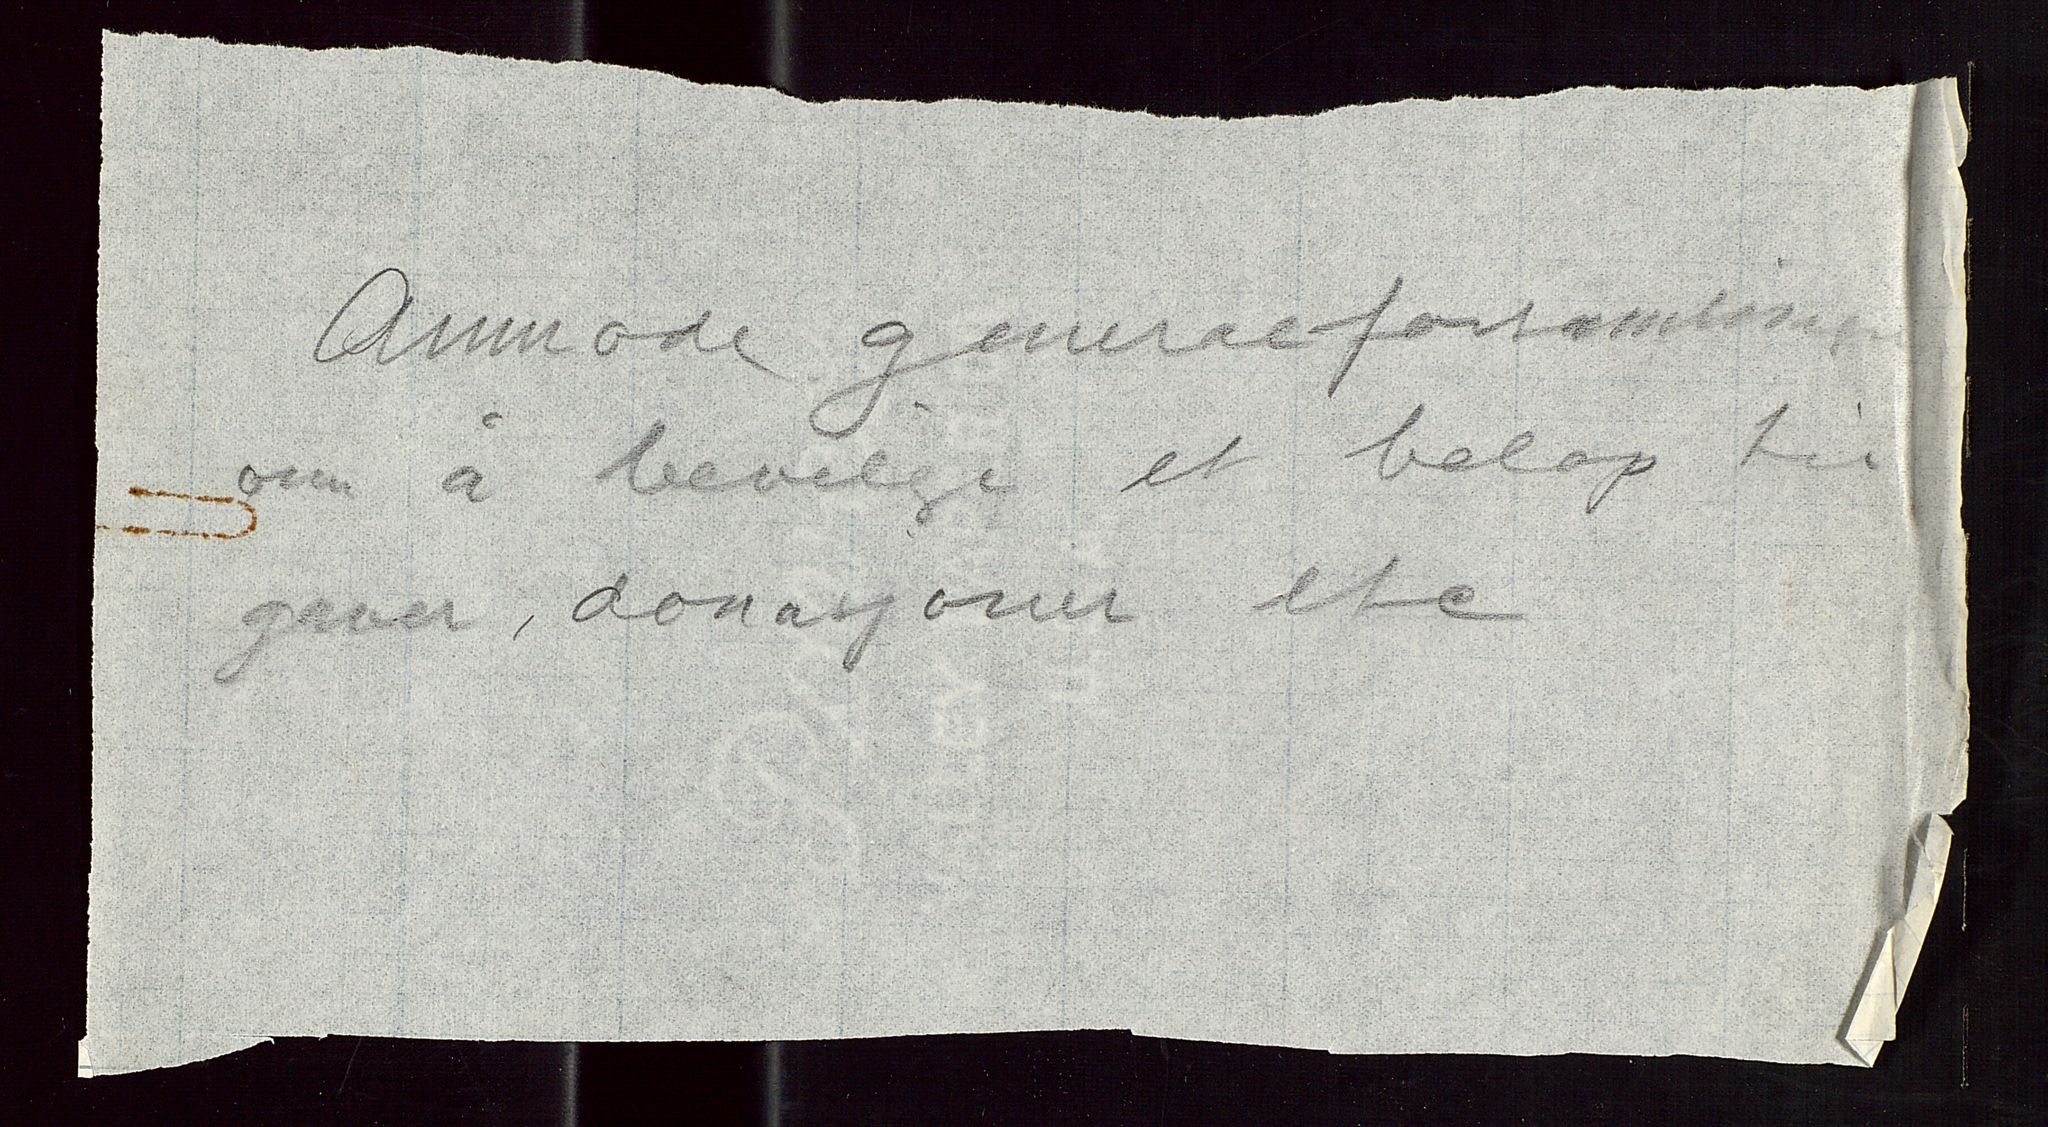 Anmode generalforsamlingen
om å bevilge et beløp til
gaver, donasjoner etc